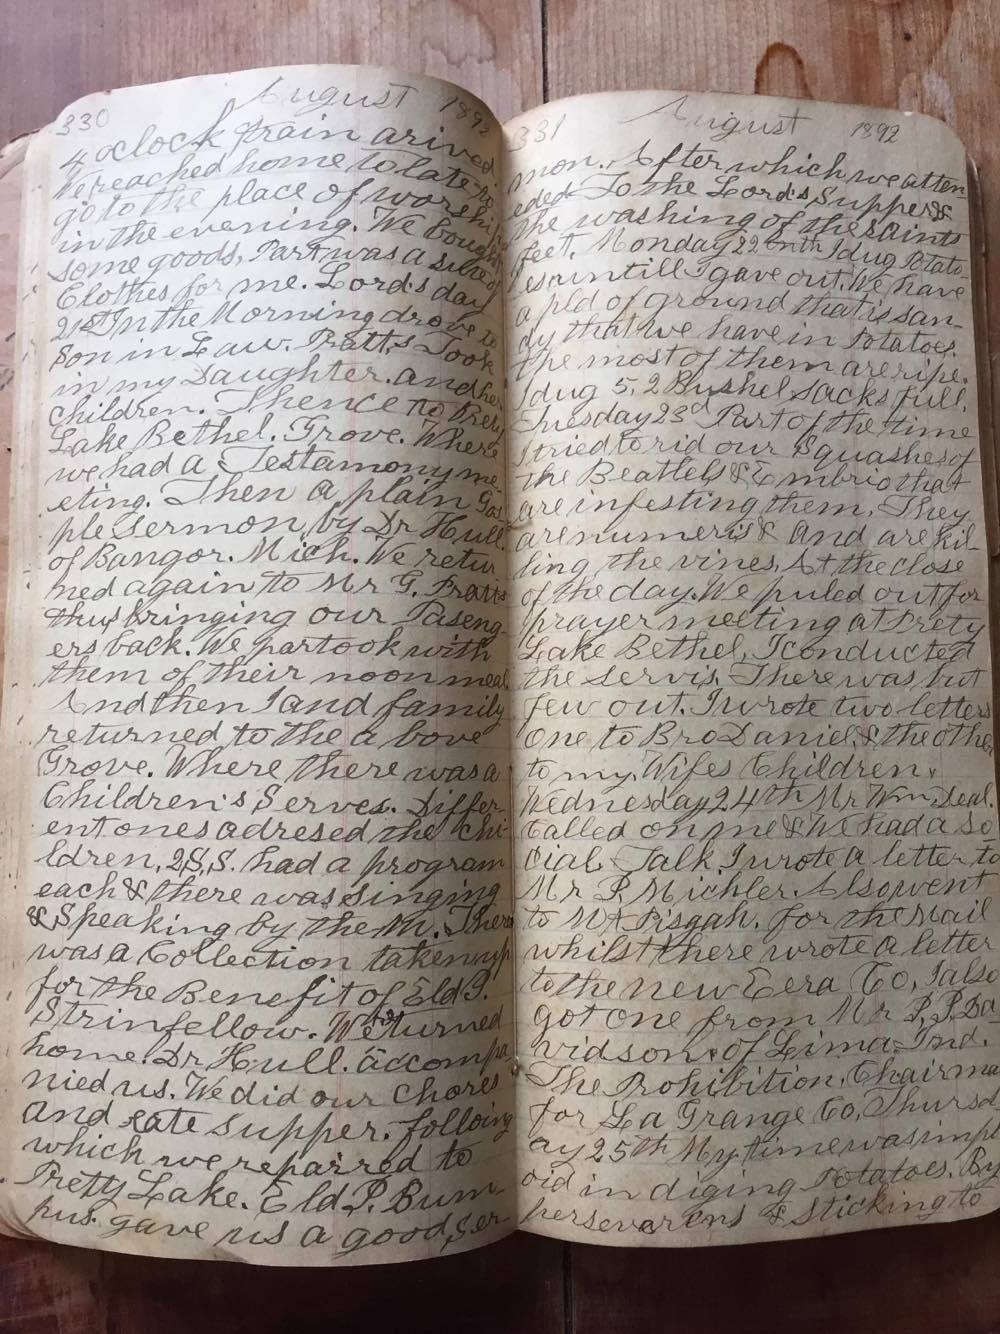 330 August 1892
4 oclock train arived.
We reached home to late to
go to the place of worship
in the evening. We bought
some goods, Part was a suite of
Clothes for me. Lord's day
21st In the Morning drove to
Son in Law. Pratt,s Took
in my Daughter. and her
children. Thence to Prety
Lake Bethel. Grove. Where
we had a Testamony me-
eting. Then a plain Gos
ple sermon, by Dr Hull.
of Bangor. Mich. We retur
ned again to Mr G. Pratts
thus bringing our Paseng-
ers back. We partook with
them of their noon meal
And then I and family
returned to the a bove
Grove. Where there was a
Children's Serves. Differ-
ent ones adresed the chi-
ldren, 2 S,S. had a program
each & there was singing
& Speaking by the m. There
was a Collection taken up
for the Benefit of Eld P.
Strinfellow. We returned
home. Dr Hull. accompa
nied us. We did our chores
and eate supper. folloing
which we repaired to
Pretty Lake. Eld P. Bum-
pus. gave us a good, Ser-
331 August 1892
mon. After which we atten-
eded To the Lord's Supper &
the washing of the saints
feet. Monday 22nth I dug Potato-
es untill I gave out. We have
a pld of ground that is san-
dy that we have in Potatoes.
the most of them are ripe.
I dug 5, 2 Bushel Sacks full.
Tuesday 23d Part of the time
I tried to rid our Squashes of
the Beatles & Embrio that
are infesting them. They
are numeris & and are kil-
ling the vines. At the close
of the day. We puled out for
prayer meeting at Prety
Lake Bethel. I conducted
the servis. There was but
few out. I wrote two letters
One to Bro Daniel, & the other
to my, Wifes Children.
Wednesday 24th Mr Wm, Deal.
Called on me & We had a so
cial Talk. I wrote a letter to
Mr P. Michler. Also went
to Mt Pisgah. for the Mail
whilst there wrote a letter
to the new Eera Co, I also
got one from Mr P. P. Da-
vidson. of Lima. Ind.
The Prohibition, Chairma
for La Grange Co, Thursd
ay 25th My time was impl
oid in diging Potatoes. By
persevarens & sticking to